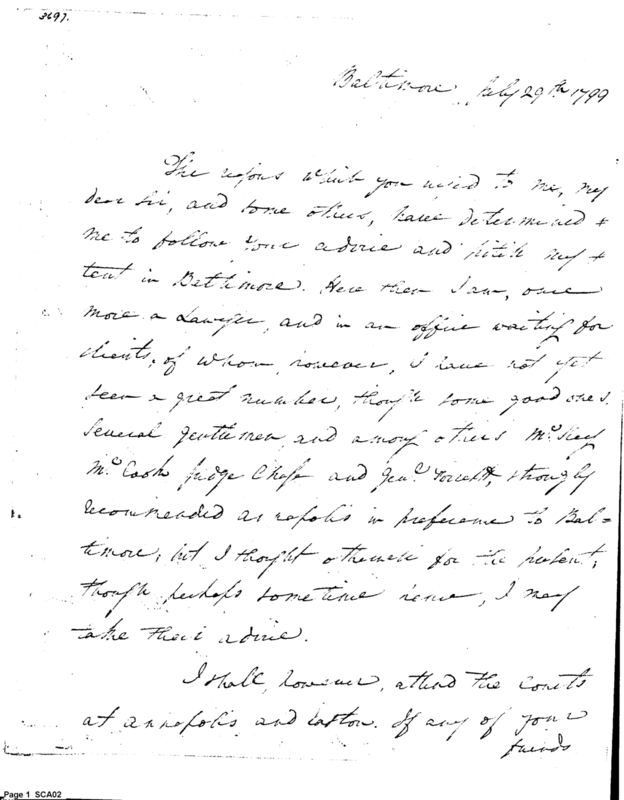 3697.
Baltimore July 29th 1799
The reasons which you used to me, my
dear Sir, and some others, have determined
me to follow your advice and pitch my
tent in Baltimore. Here then I am, once
more a Lawyer, and in an office waiting for
clients, of whom, however, I have not yet
seen a great number, though some good ones.
Several gentlemen and among others Mr.
Mr. Cook Judge Chase and Genl. strongly
recommended annapolis in preference to Bal=
timore, but I thought otherwise for the present,
though perhaps sometime hence, I may
take their advice.
I shall, however, attend the Courts
at annapolis and Easton. If any of your
friends
Page 1 SCA02